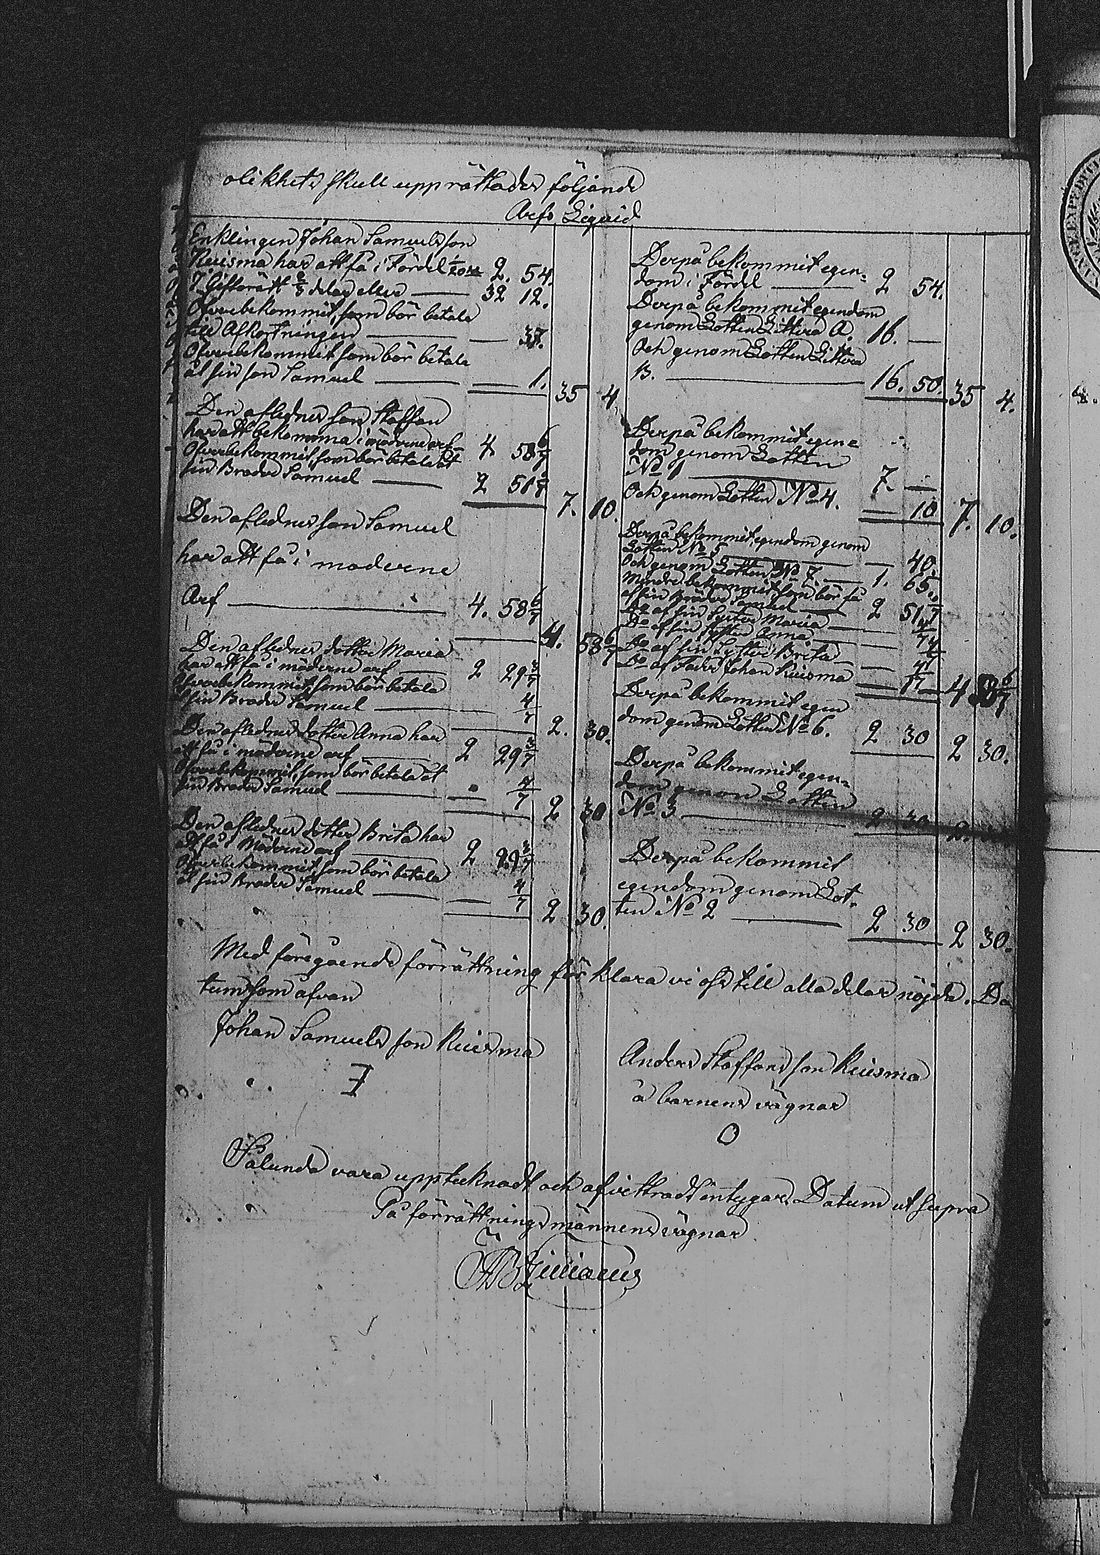 olikhets skull upprättades följande
Arfs Liqvid
Enklingen Johan Samuelsson
Ruusma har att få i Fördel 1/20 2. 54.
I Giftorätt 2/3 delar eller 32 12.
Öfverbekommit, som bör betala
till Afkortningen 37.
Öfverbekommit som bör betala
åt sin son Samuel 1. 35 4.
Den aflednes son Staffan
har att bekomma i möderne arf 4 58 6/7
Öfverbekommit, som bör betala åt
sin Broder Samuel 2 51 1/7 7. 10.
Den aflednes son Samuel
har att få i möderne
Arf 4. 58 6/7 4. 58 6/7
Den aflednes dotter Maria
har att få i möderne arf 2 29 3/7
Öfverbekommit, som bör betala
åt sin Broder Samuel 4/7 2. 30.
Den aflednes dotter Anna har
att få i möderne arf 2 29 3/7
Öfverbekommit, som bör betala åt
sin Broder Samuel 4/7 2 30
Den aflednes dotter Brita har
att få i Möderne arf 2 29 3/7
Öfverbekommit, som bör betala
åt sin Broder Samuel 4/7 2 30.
Derpå bekommit egen-
dom i Fördel 2 54.
Derpå bekommit egendom
genom Lotten Littera A. 16. —
Och genom Lotten Littera
B. 16. 50. 35 4.
Derpå bekommit egen
dom genom Lotten
No 1 7. —
Och genom Lotten No 4. — 10 7. 10.
Derpå bekommit egendom genom
Lotten No 5 — 40.
Och genom Lotten No 7 1. 65.
Mindre bekommit som bör få
af sin Broder 2 51 1/7
Do af sin Syster Maria 4/7
Do af sin Syster Anna 4/7
Do af sin Syster Brita 4/7
Do af Fadr Johan Ruusma 1. 4 58 6/7
Derpå bekommit egen
dom genom Lotten No 6. 2 30 2 30.
Derpå bekommit egen-
dom genom Lotten
No 3 2 30 2.
Derpå bekommit
egendom genom Lot-
ten No 2 2 30 2 30.
Med föregående förrättning förklara vi oss till alla delar nöjda. Da
tum som ofvan
Johan Samuels son Ruusma
Anders Staffans son Ruusma
å barnens vägnar
O
Sålunda vara upptecknadt och afvittradt intygar Datum ut supra
På förrättnings männens vägnar